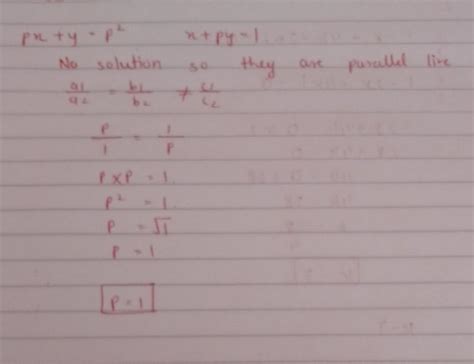 px + y = p² x + py = 1
No solution so they are parallel line
a1/a2 = b1/b2 ≠ c1/c2
P/1 = 1/P
P × P = 1
P² = 1
P = √1
P = 1
P = 1